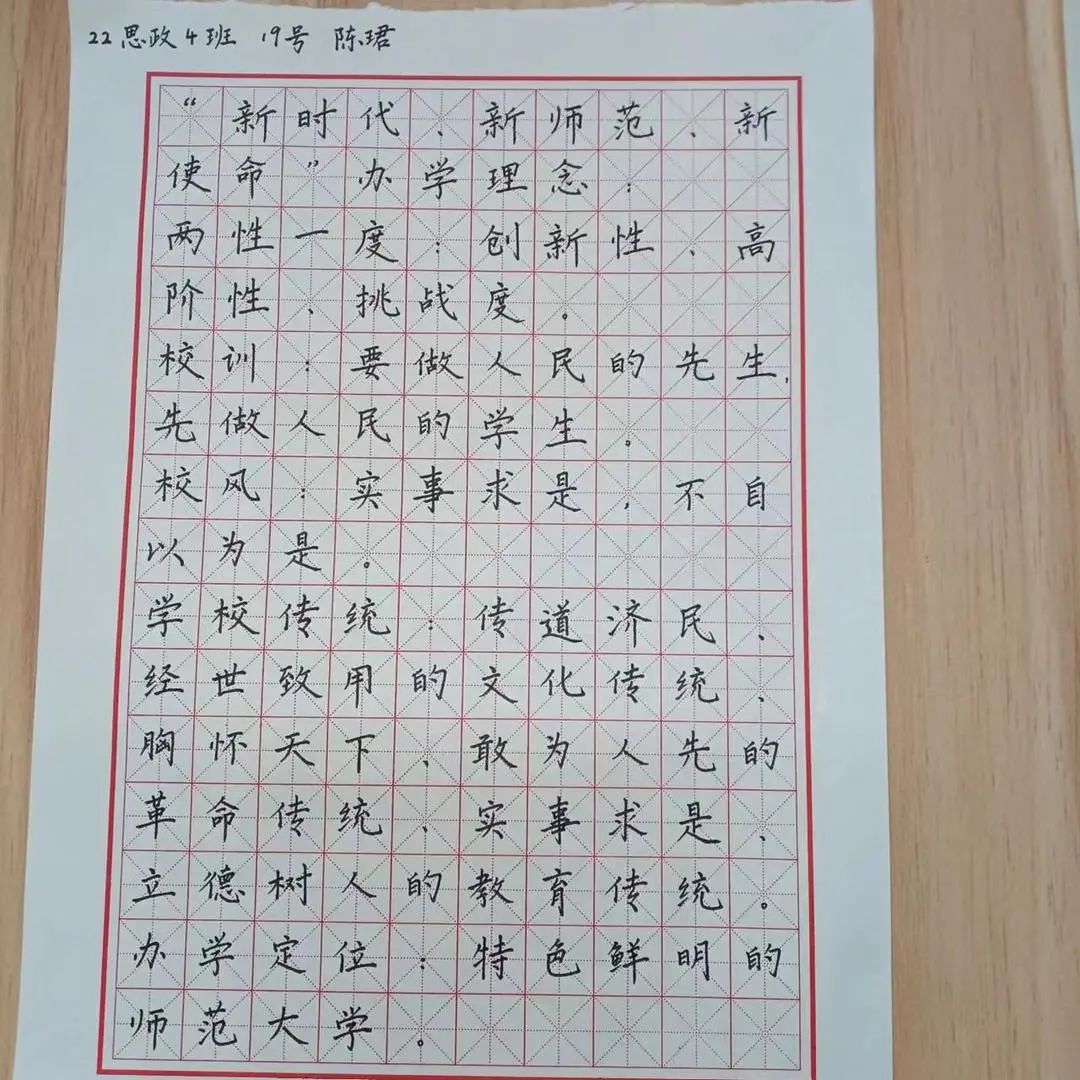 22思政4班 19号 陈珺
“新时代、新师范、新
使命”办学理念：
两性一度：创新性、高
阶性、挑战度。
校训：要做人民的先生，
先做人民的学生。
校风：实事求是，不自
以为是。
学校传统：传道济民、
经世致用的文化传统、
胸怀天下、敢为人先的
革命传统、实事求是、
立德树人的教育传统。
办学定位：特色鲜明的
师范大学。